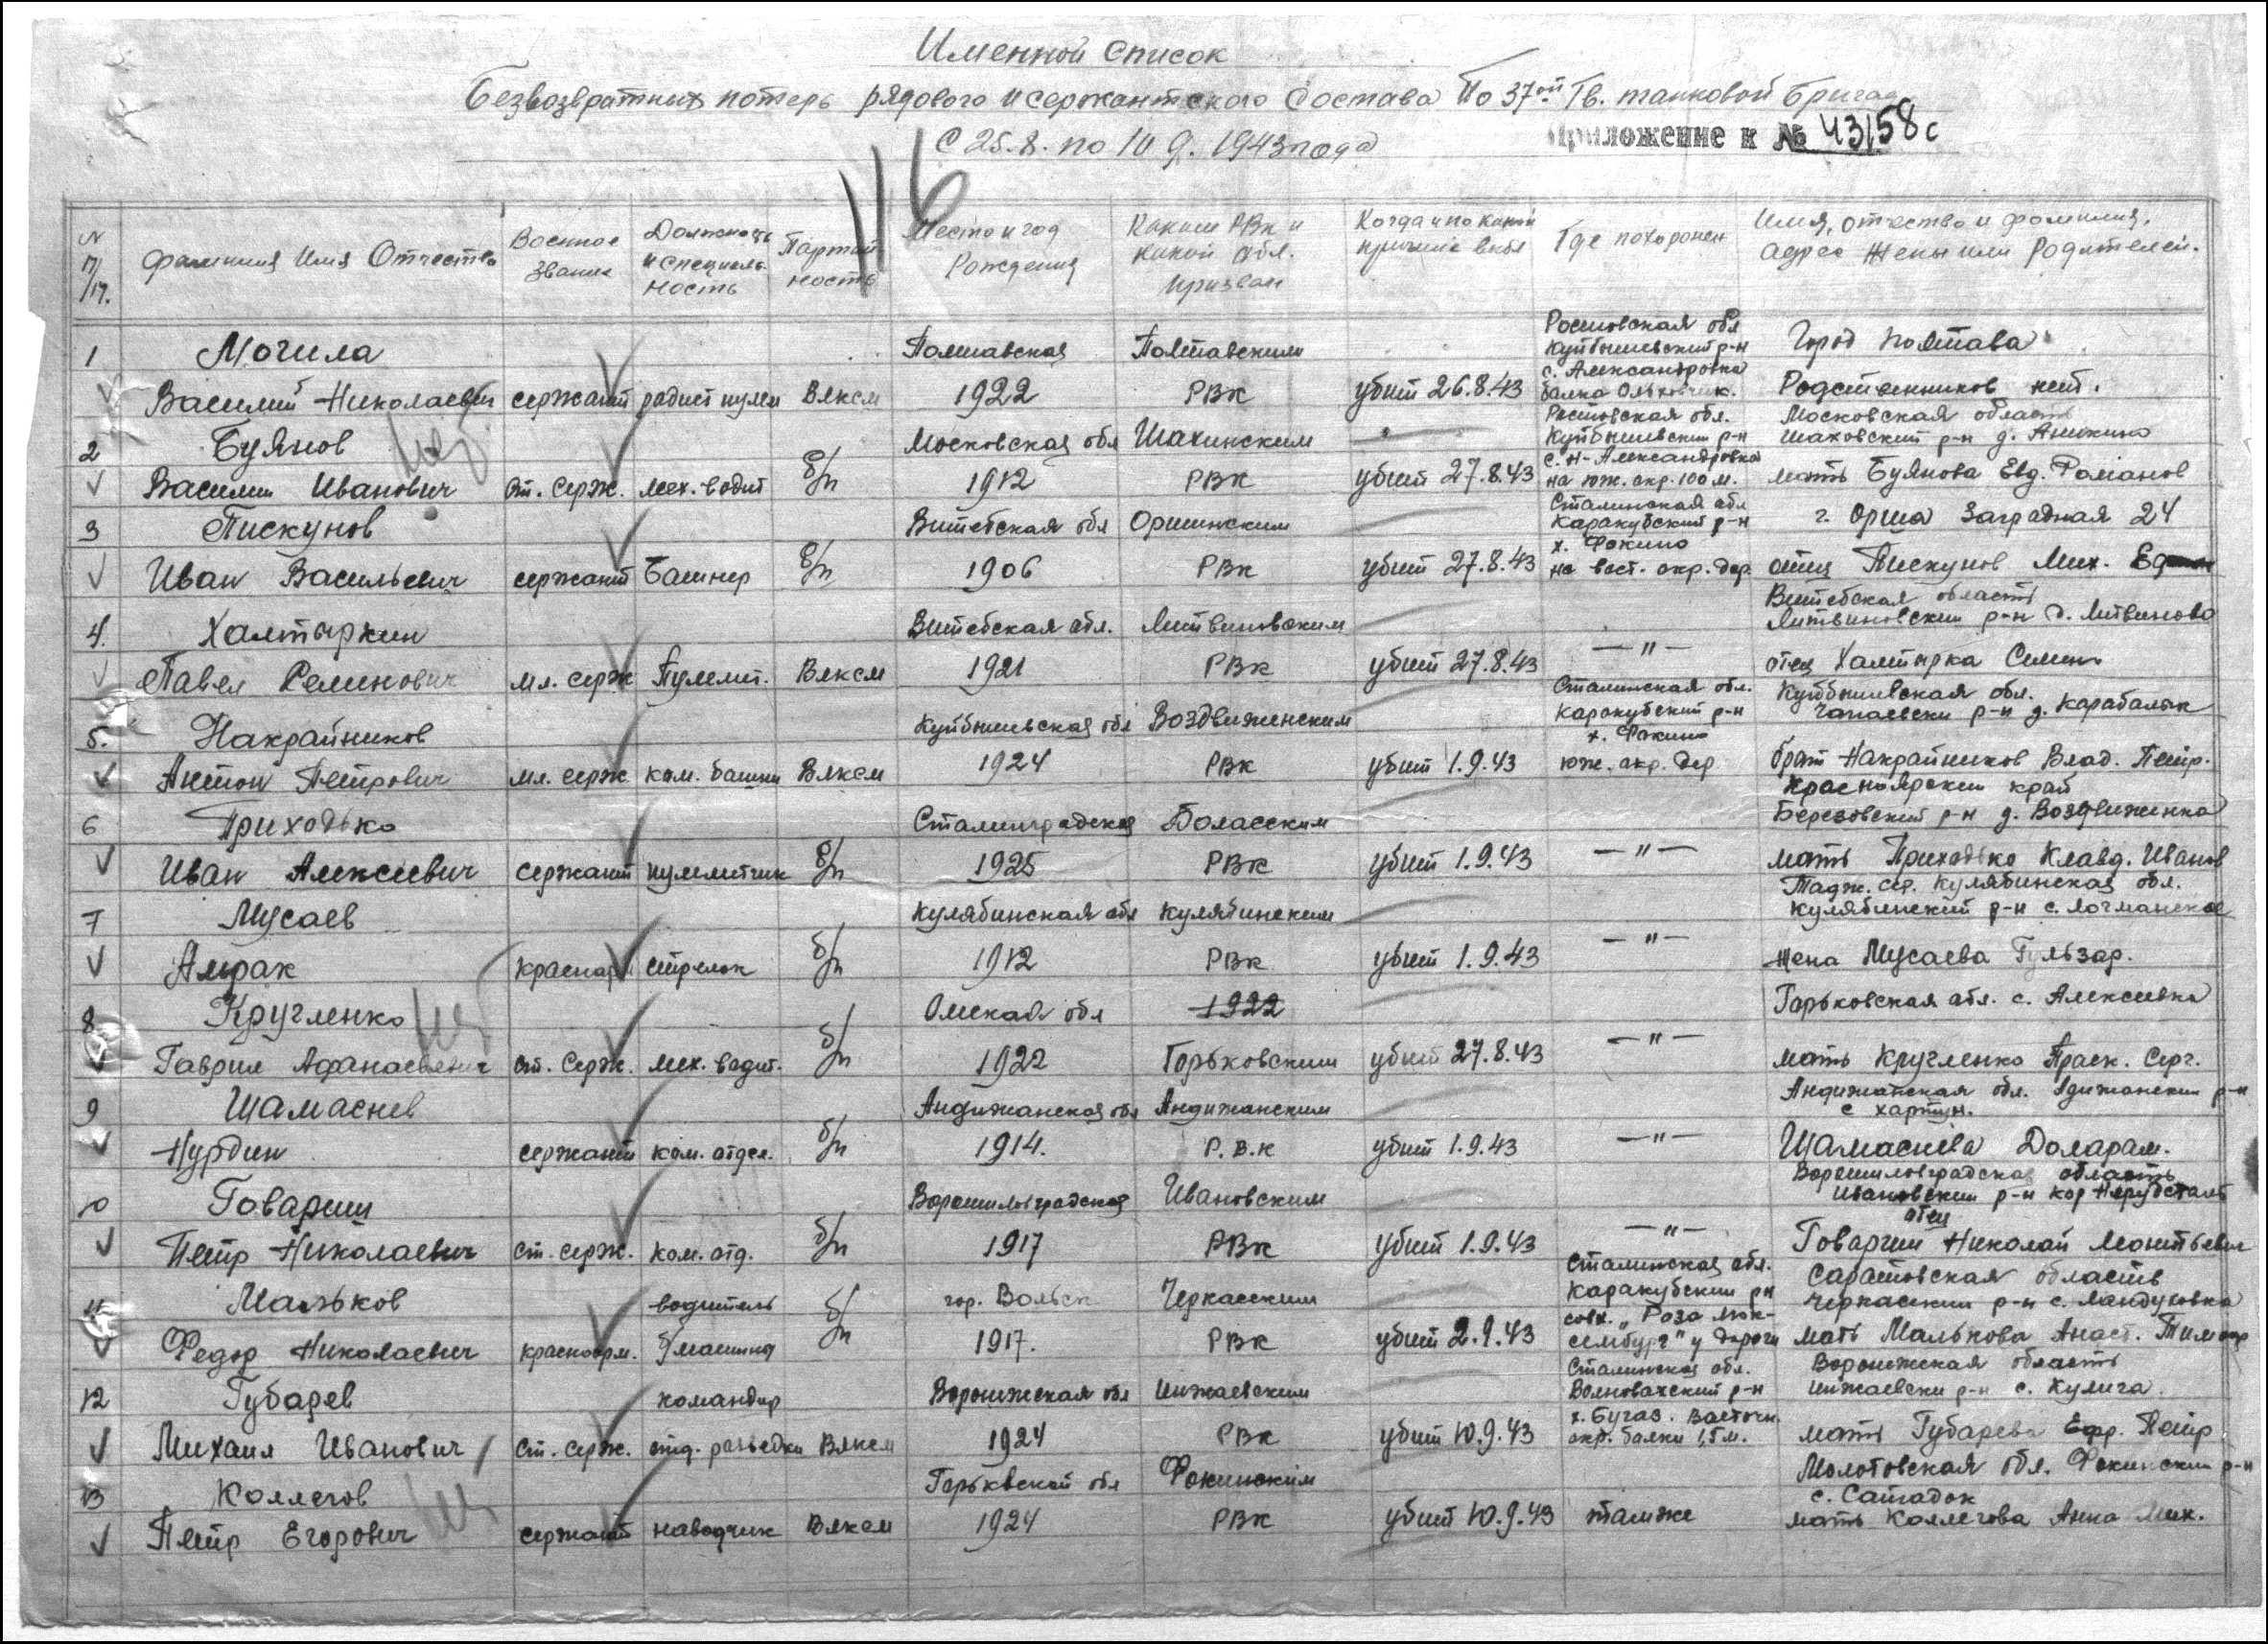 Именной список
Безвозвратных потерь рядового и сержантского состава По 37ой Гв. танковой
С 25.8. по 10 9. 1943 года
Приложение к № 43158с
116
N п/п. Фамилия Имя Отчество Военное Звание Должность и специаль-ность Партий ность Место и год Рождения Каким РВк и какой Обл. призван Когда и по какой причине выбыл Где похоронен Имя, отчество и фамилия, адрес Жены или Родителей.
Ростовская обл
1 Могила Полтавская Полтавским Куйбышевский р-н Город Полтава
с. Александровка
Василий Николаевич сержант радист пулем Влксм 1922 РВк убит 26.8.43 балка Родственников нет.
Ростовская обл. Московская область
2 Буянов Московская обл Шахинским Куйбышевский р-н Шаховский р-н д. Аникино
с. Н-Александровка
Василий Иванович ст. серж. мех. водит б/п 1912 РВк убит 27.8.43 на юж. окр. 100 м. мать Буянова Евд. Романов
Сталинская обл
3 Пискунов Витебская обл Оршинским Каракубский р-н г. Орша Заградная 24
х. Фокино
Иван Васильевич сержант Башнер б/п 1906 РВк убит 27.8.43 на вост. окр. дер. отец Пискунов Мих.
Витебская область
4. Халтыркин Витебская обл. Литвиновским Литвиновский р-н д. Литвиново
Павел Семенович мл. серж Пулемет. Влксм 1921 РВк убит 27.8.43 — " — отец Халтырка Семен
Сталинская обл. Куйбышевская обл.
5. Накрайников Куйбышевская обл Воздвиженским Каракубский р-н Чапаевски р-н д. Карабалык
х. Фокино
Антон Петрович мл. серж ком. башни Влксм 1924 РВк убит 1.9.43 юж. окр. дер брат Накрайников Влад. Петр.
Красноярский край
6 Приходько Сталинградская Боласским Березовский р-н д. Воздвиженка
Иван Алексеевич сержант пулеметчик б/п 1925 РВк убит 1.9.43 — " — мать Приходько Клавд. Иванов
Тадж. сср. Кулябинская обл.
7 Мусаев Кулябинская обл Кулябинским Кулябинский р-н с.
красноарм стрелок б/п 1912 РВк убит 1.9.43 — " — жена Мусаева Гульзар.
8 Кругленко Омская обл 1922 Горьковская обл. с. Алексеевка
Гаврил Афанасьевич ст. серж. мех. водит. б/п 1922 Горьковским убит 27.8.43 — " — мать Кругленко Праск. Серг.
Андижанская обл. Адижанский р-н
9 Шамаснев Андижанская обл Андижанским с хартун.
Нурдин сержант ком. отдел. б/п 1914. Р.В.К убит 1.9.43 — " — Шамаснева Доларам.
Ворошиловградская область
10 Говаргин Ворошиловградская Ивановским Ивановский р-н
отец
Петр Николаевич ст. серж. ком. отд. б/п 1917 РВк убит 1.9.43 — " — Говаргин Николай
Сталинская обл. Саратовская область
11 Мальков водитель б/п гор. Вольск Черкасским Каракубский рн Черкасский р-н с. Ландуховка
совх. "Роза Люк-
Федор Николаевич красноарм. б/машины 1917. РВк убит 2.9.43 сембург" у дороги мать Малькова Анаст. Тимоф
Сталинская обл. Воронежская область
12 Губарев командир Воронежская обл Инжаевским Волновахский р-н Инжаевски р-н с. Кулига
х. Бугас. Восточн.
Михаил Иванович ст. серж. отд. разведки Влксм 1924 РВк убит 10.9.43 окр. балки 1,5 м. мать Губарева Ефр. Петр
Молотовская обл. Фокинский р-н
13 Коллегов Горьквской обл Фокинским с. Сападок
Петр Егорович сержант наводчик Влксм 1924 РВк убит 10.9.43 тамже мать Коллегова Анна Мих.